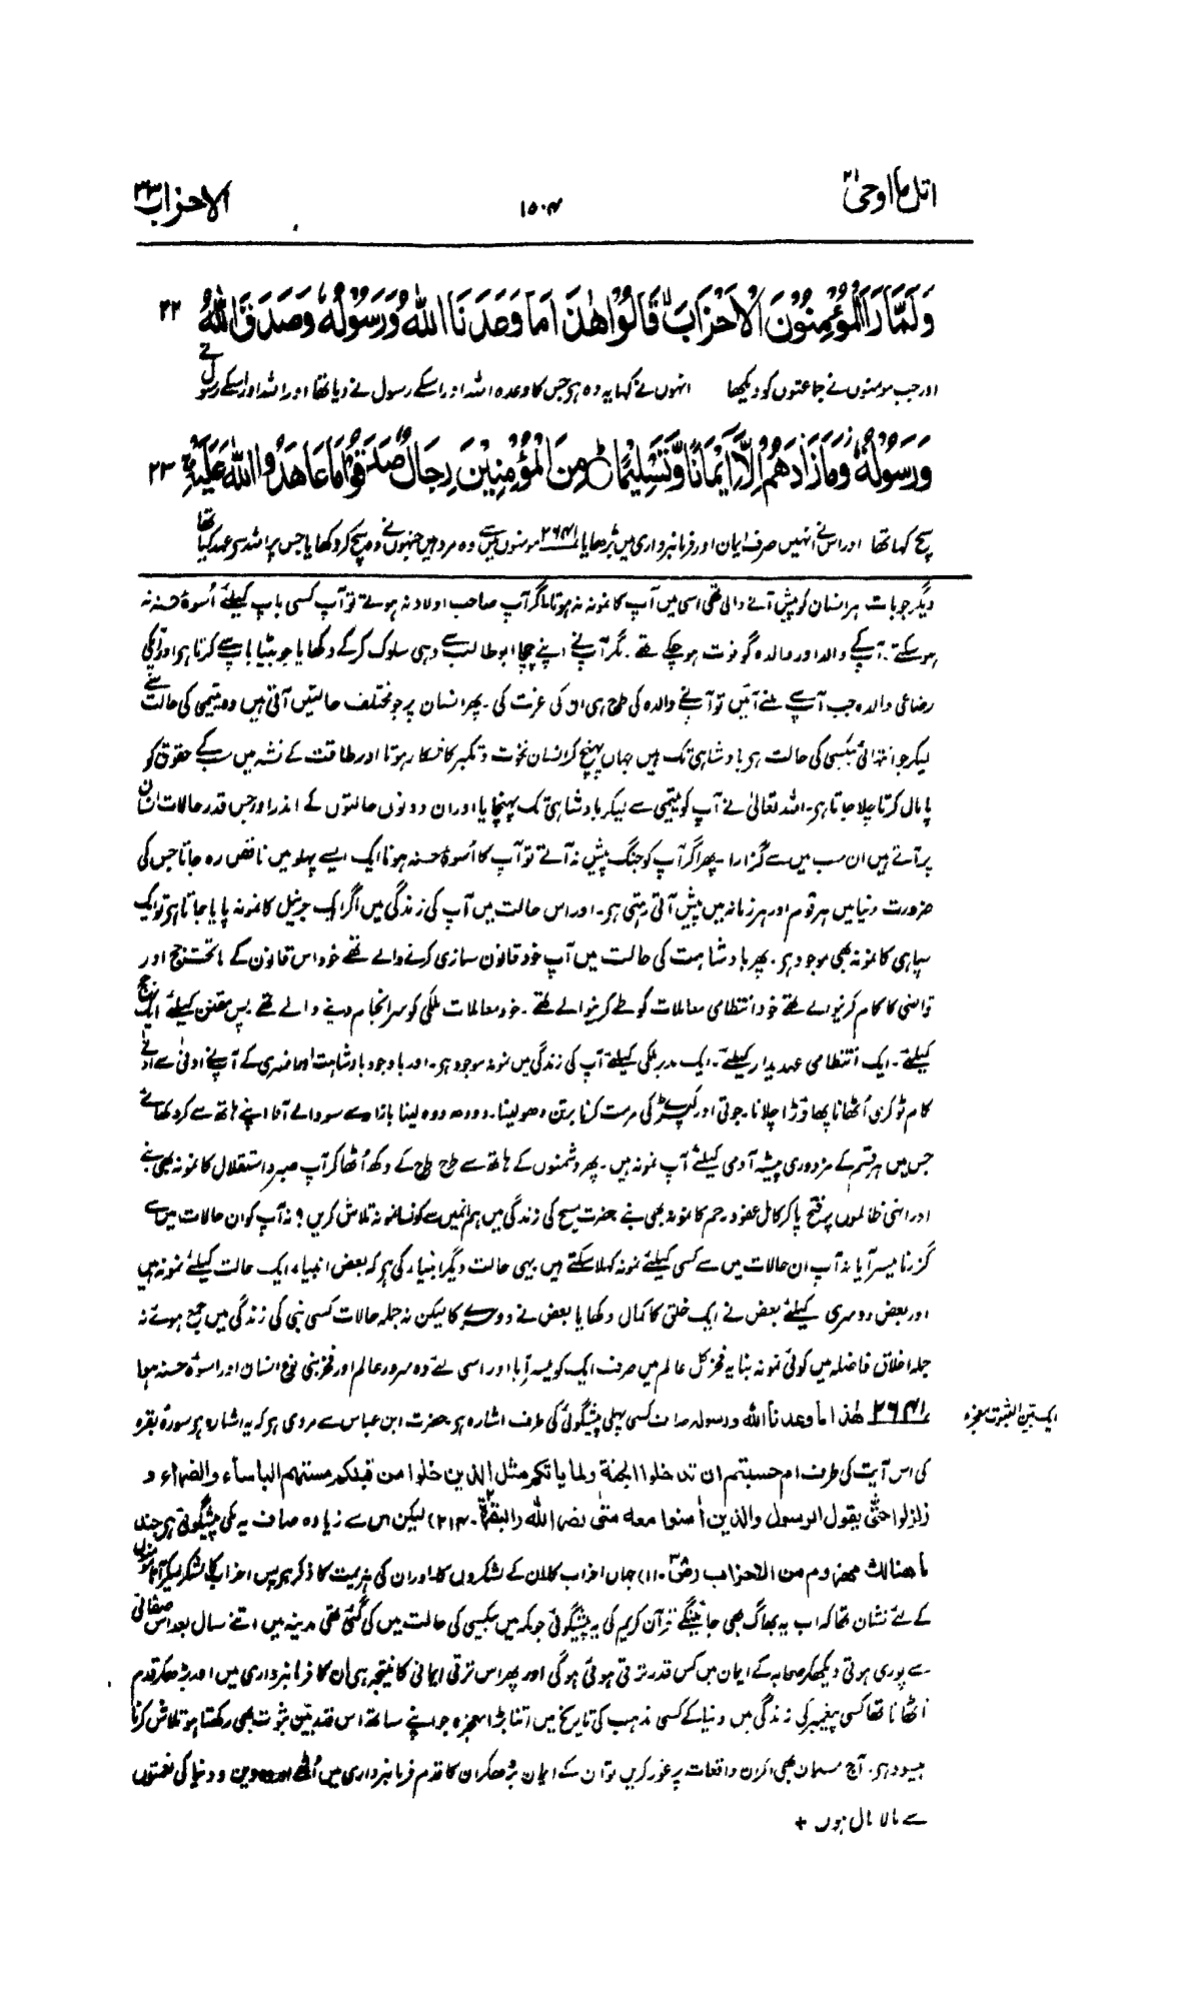 اتل ما اوحی ۲۱
۱۵۰۴
الاحزاب ۳۳
وَلَمَّا رَاَ الْمُؤْمِنُوْنَ الْاَحْزَابَ قَالُوْا هٰذَا مَا وَعَدَنَا اللّٰهُ وَرَسُوْلُهٗ وَصَدَقَ اللّٰهُ ۲۲
اور جب مومنوں نے جماعتوں کو دیکھا انہوں نے کہا یہ وہ ہو جس کا وعدہ اللہ اور اسکے رسول نے دیا تھا اور اللہ اور اسکے رسول نے
وَرَسُوْلُهٗ وَمَا زَادَهُمْ اِلَّا اِيْمَانًا وَّتَسْلِيْمًا مِنَ الْمُؤْمِنِيْنَ رِجَالٌ صَدَقُوْا مَا عَاهَدُوا اللّٰهَ عَلَيْهِ ۲۳
سچ کہا تھا اور اس نے انہیں صرف ایمان اور فرمانبرداری میں بڑھایا ۲۶۴۱ مومنوں میں سے وہ مرد ہیں جنہوں نے وہ سچ کر دکھایا جس پر اللہ سے عہد کیا تھا
دیگر جو بات ہر انسان کو پیش آنے والی تھی اسی میں آپ کا نمونہ نہ ہوتا مگر آپ صاحب اولاد نہ ہوتے تو آپ کسی باپ کیلئے اُسوۂ حسنہ نہ
ہو سکتے۔ آپ کے والد اور والدہ گو فوت ہو چکے تھے۔ مگر آپ نے اپنے چچا ابو طالب سے وہی سلوک کرکے دکھایا جو بیٹا باپ سے کرتا ہو اور آپ کی
رضاعی والدہ جب آپ سے ملنے آئیں تو آپ نے والدہ کی طرح ہی ان کی عزت کی۔ پھر انسان پر جو مختلف حالتیں آتی ہیں وہ یتیمی کی حالت سے
لیکر جو انتہائی بیکسی کی حالت ہو بادشاہی تک ہیں جہاں پہنچ کر انسان نخوت و تکبر کا شکار ہوتا اور طاقت کے نشہ میں سب کے حقوق کو
پامال کرتا چلا جاتا ہو۔ اللہ تعالیٰ نے آپ کو یتیمی سے لیکر بادشاہی تک پہنچایا اور ان دونوں حالتوں کے اندر اور جس قدر حالات انسان
پر آتے ہیں ان سب میں سے گزارا۔ پھر اگر آپ کو جنگ پیش نہ آتے تو آپ کا اُسوۂ حسنہ ہونا ایک ایسے پہلو میں ناقص رہ جاتا جس کی
ضرورت دنیا میں ہر قوم اور ہر زمانہ میں پیش آتی رہتی ہو۔ اور اس حالت میں آپ کی زندگی میں اگر ایک جرنیل کا نمونہ پایا جاتا ہو تو ایک
سپاہی کا نمونہ بھی موجود ہو۔ پھر بادشاہت کی حالت میں آپ خود قانون سازی کرنے والے تھے خود اس قانون کے ماتحت جج اور
قاضی کا کام کرنیوالے تھے خود انتظامی معاملات کو طے کرنیوالے تھے۔ خود معاملات ملکی کو سرانجام دینے والے تھے پس مقنن کیلئے ایک جج
کیلئے۔ ایک انتظامی عہدیدار کیلئے۔ ایک مدبر ملکی کیلئے آپ کی زندگی میں نمونہ موجود ہو۔ اور باوجود بادشاہت اور افسری کے آپ نے ادنیٰ سے ادنیٰ
کام ٹوکری اُٹھانا پھاوڑا چلانا۔ جوتی اور کپڑے کی مرمت کرنا برتن دھولینا۔ دودھ دوہ لینا بازار سے سودا لے آنا اپنے ہاتھ سے کر دکھائے
جس میں ہر قسم کے مزدوری پیشہ آدمی کیلئے آپ نمونہ ہیں۔ پھر دشمنوں کے ہاتھ سے طرح طرح کے دکھ اُٹھا کر آپ صبر و استقلال کا نمونہ بھی بنے
اور انہی ظالموں پر فتح پاکر کامل عفو و رحم کا نمونہ بھی بنے حضرت مسیح کی زندگی میں ہم انمیں سے کونسا نمونہ تلاش کریں؟ نہ آپ کو ان حالات میں سے
گزرنا میسر آیا نہ آپ ان حالات میں سے کسی کیلئے نمونہ کہلا سکتے ہیں یہی حالت دیگر انبیاء کی ہو کہ بعض انبیاء ایک حالت کیلئے نمونہ ہیں
اور بعض دوسری کیلئے بعض نے ایک خلق کا کمال دکھایا بعض نے دوسرے کا لیکن نہ جملہ حالات کسی نبی کی زندگی میں جمع ہوئے نہ
جملہ اخلاق فاضلہ میں کوئی نمونہ بنا یہ فخر کل عالم میں صرف ایک کو میسر آیا اور اسی لئے وہ سرور عالم اور فخر بنی نوع انسان اور اسوۂ حسنہ ہوا
۲۶۴۱ هٰذا ما وعدنا الله ورسوله میں کسی پہلی پیشگوئی کی طرف اشارہ ہو حضرت ابن عباس سے مروی ہو کہ یہ اشارہ ہو سورۂ بقرہ
ایک بیّن الثبوت معجزہ
کی اس آیت کی طرف ام حسبتم ان تدخلوا الجنة ولما یاتکم مثل الذین خلوا من قبلکم مستهم الباساء والضراء و
زلزلوا حتّٰی یقول الرسول والذین اٰمنوا معه متی نصر الله (البقرة ۲۔۲۱۴) لیکن اس سے زیادہ صاف یہ مکی پیشگوئی ہو جند
ما هنالك مهزوم من الاحزاب (صٓ۔۱۱) جہاں احزاب کلان کے لشکروں کا اور ان کی ہزیمت کا ذکر ہو پس احزاب کا لشکر لیکر آنا مومنوں
کے لئے نشان تھا کہ اب یہ بھاگ بھی جائینگے قرآن کریم کی یہ پیشگوئی جو کہ مکہ میں بیکسی کی حالت میں کی گئی تھی مدینہ میں اتنے سال بعد اس صفائی
سے پوری ہوتی دیکھکر صحابہ کے ایمان میں کس قدر ترقی ہوئی ہوگی اور پھر اس ترقی ایمانی کا نتیجہ ہی ان کا فرمانبرداری میں اور بڑھکر قدم
اُٹھانا تھا کسی پیغمبر کی زندگی میں دنیا کے کسی مذہب کی تاریخ میں اتنا بڑا معجزہ جو اپنے ساتھ اس قدر بیّن ثبوت بھی رکھتا ہو تلاش کرنا
بیسود ہو۔ آج مسلمان بھی اگر ان واقعات پر غور کریں تو ان کے ایمان بڑھکر ان کا قدم فرمانبرداری میں اُٹھے اور وہ دین و دنیا کی نعمتوں
سے مالا مال ہوں +